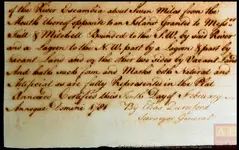 of the River Escambia about Seven Miles from the
Mouth thereof opposite an Island Granted to Messrs
and Mitchell Bounded to the S.W. by said River
and a Lagoon to the N.W. part by a Lagoon & part by
Vacant Land and on the other two sides by Vacant Land
And hath such form and Marks both Natural and
Artificial as are fully Represented in the Plat
Annexed Certified this Day of February
Anoque Domini
By Elias Durnford
Surveyor General